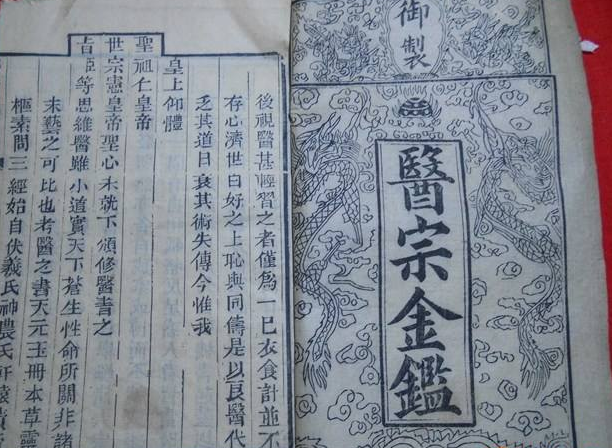 御製
醫宗金鑑
後視醫甚輕習之者僅為一己衣食計並不
存心濟世自好之士恥與同儔是以良醫代
乏其道日衰其術失傳今惟我
皇上仰體
聖祖仁皇帝
世宗憲皇帝聖心未就下頒修醫書之
旨臣等思維醫雖小道實天下蒼生性命所關非諸
末藝之可比也考醫之書天元玉冊本草靈
樞素問三經始自伏羲氏神農氏軒轅黃